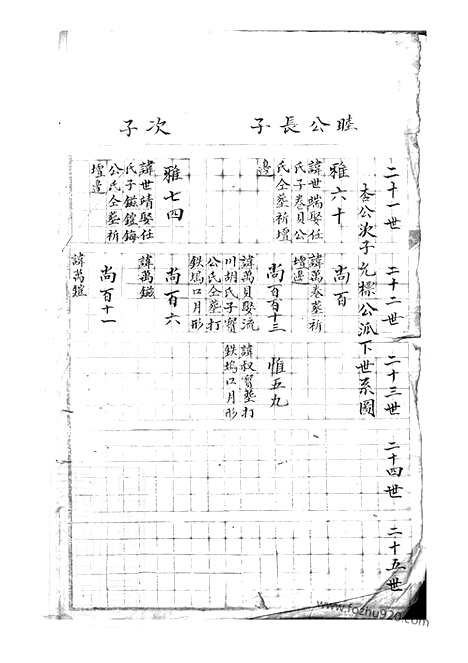 睦公長子
次子
二十一世
二十二世
二十三世
二十四世
二十五世
杏公次子允標公派下世系圖
雅六十
諱世端娶任
氏子卷貝公
氏仝墓祈壇
邊
雅七四
諱世靖娶任
氏子鎡鎧鋂
公氏仝墓祈
壇邊
尚百
諱萬卷墓祈
壇邊
尚百百十三
諱萬貝娶流
川胡氏子寳
公氏仝墓打
鉄塢口月形
尚百六
諱萬鎡
尚百十一
諱萬鎧
惟五九
諱叔寳墓打
鉄塢口月形
www.fozhu920.com